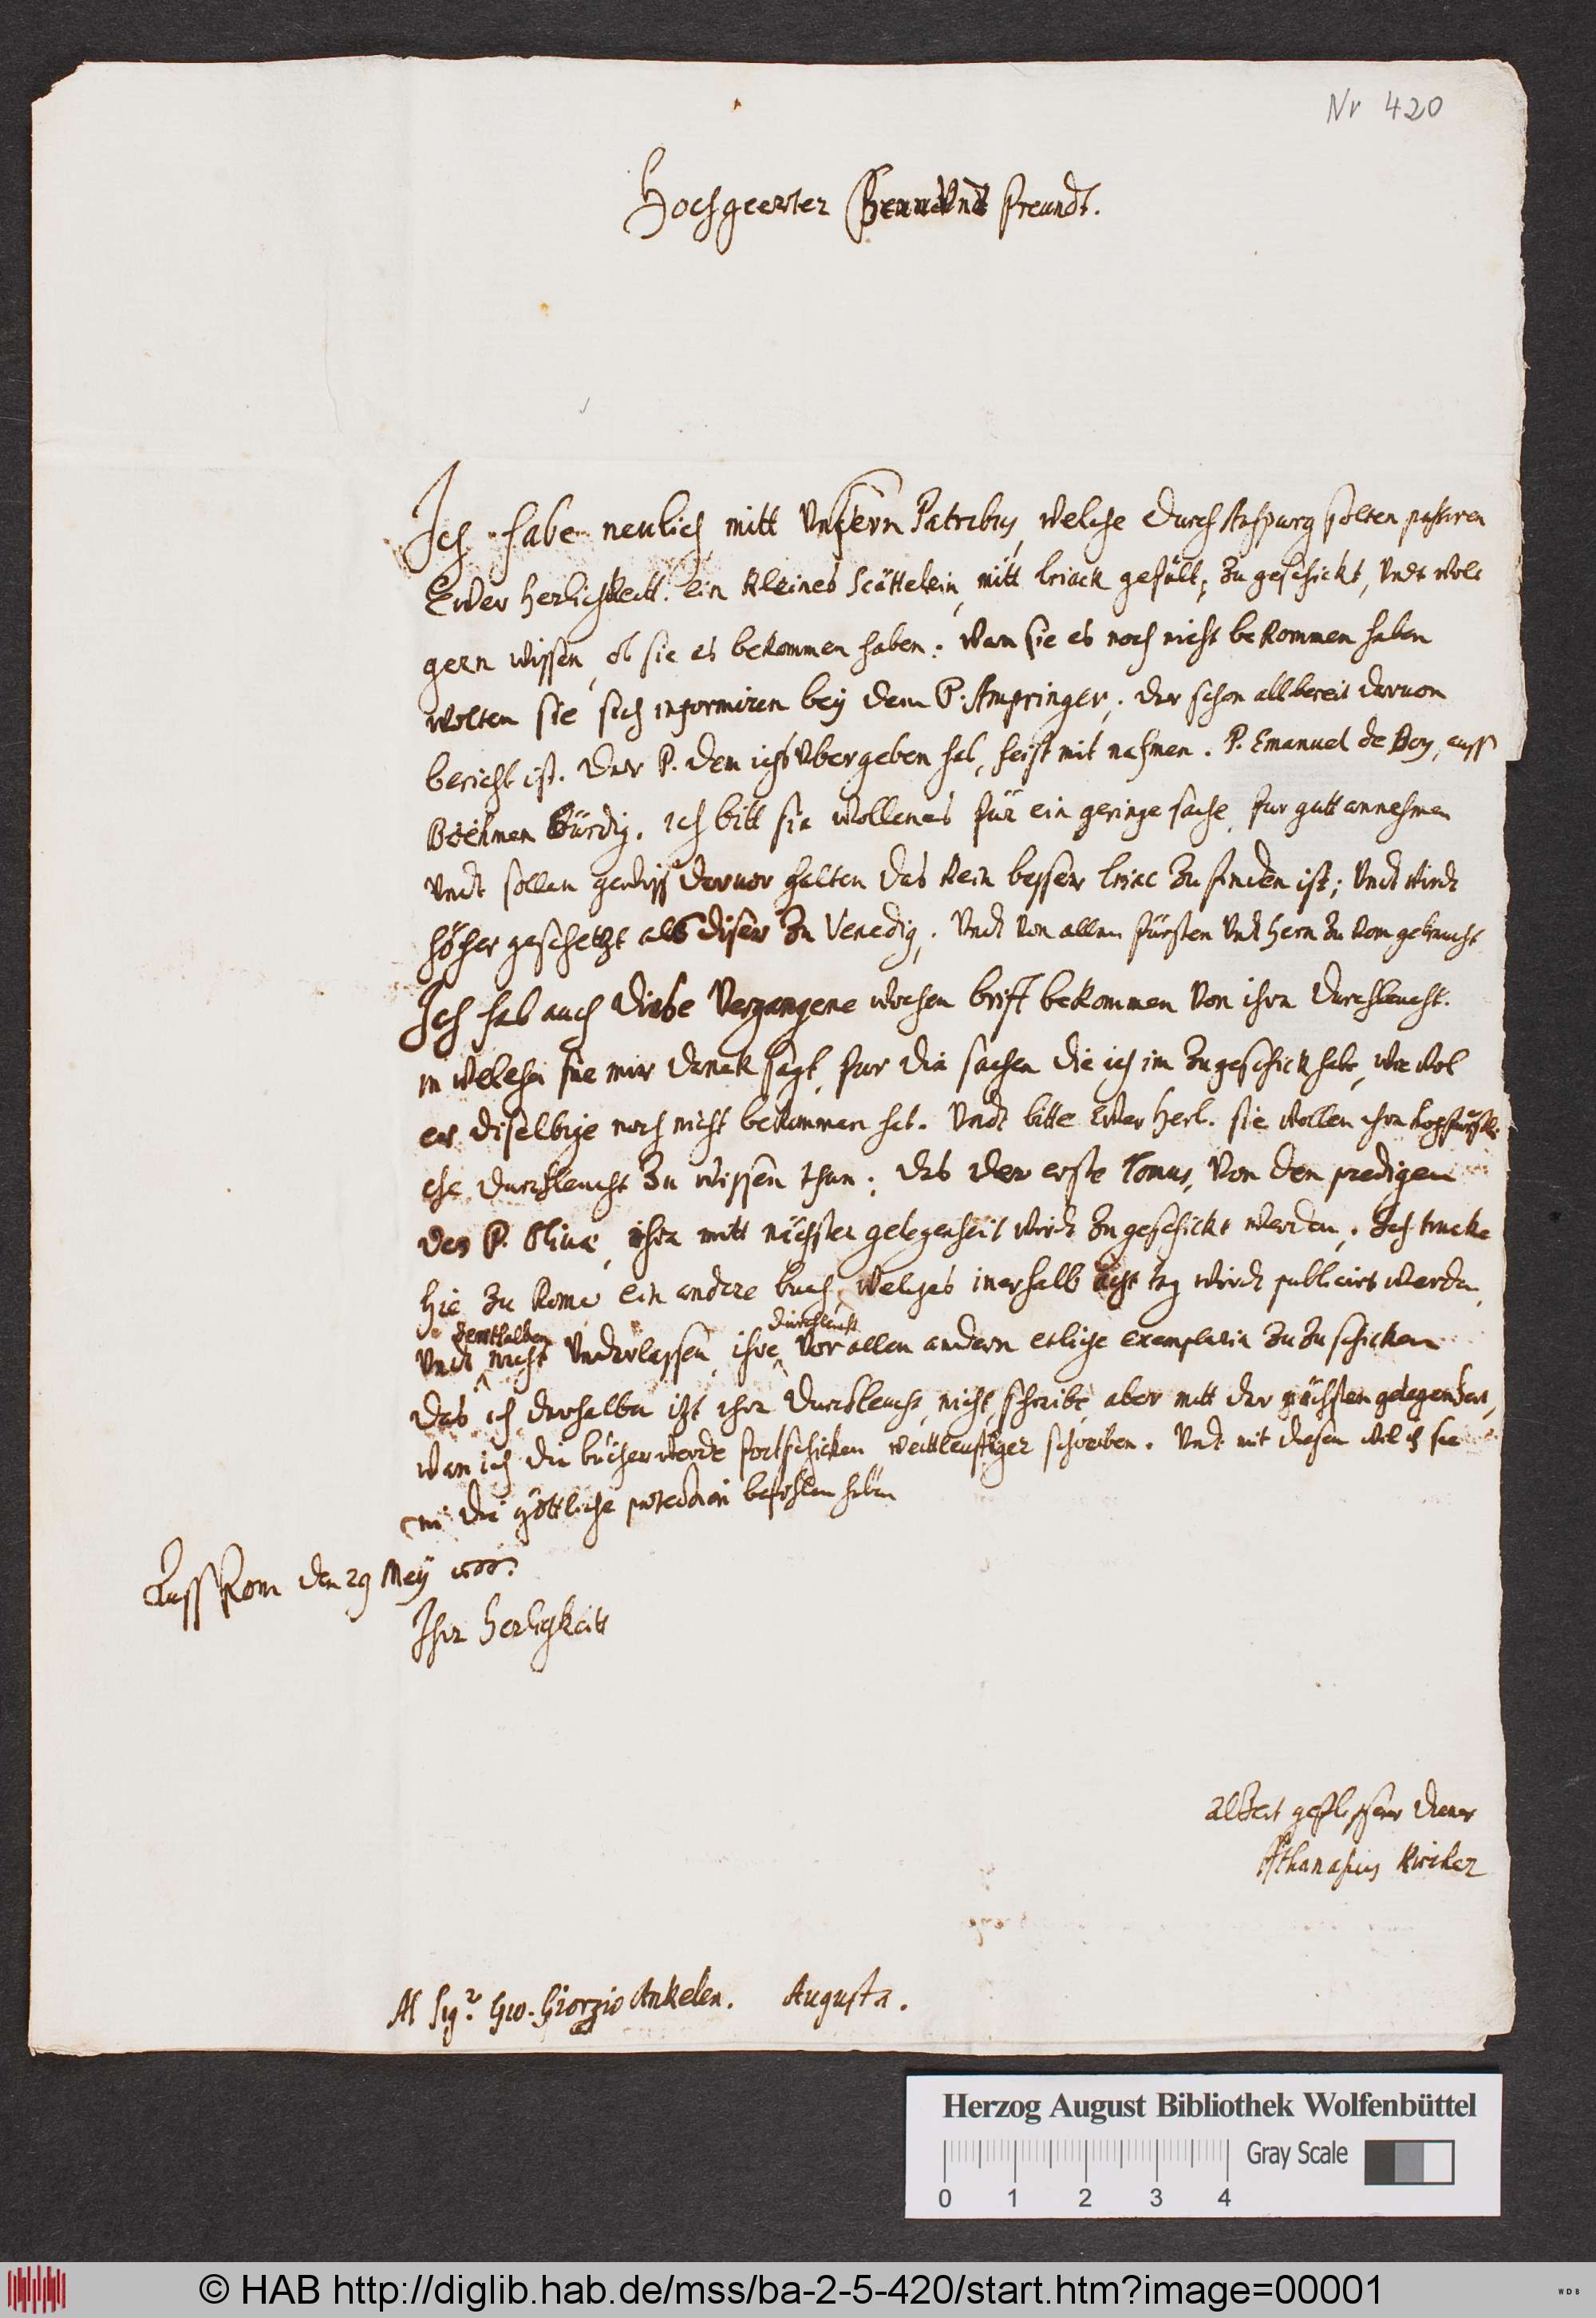 Nr 420
Hochgeerter Herr Undt freundt.
Ich habe neulich mitt Unsern Patribus, welche durch Auspurg solten passiren
Ewer Herlichkeitt. ein kleines Scättelein, mitt triack gefült, zu geschickt, Undt wolt
gern wissen, ob sie es bekommen haben: wan sie es noch nicht bekommen haben
wolten sie sich informiren bey dem P. Ampringer, der schon allbereit daruon
bericht ist. der P. den ichs Ubergeben hab, heist mit nahmen. P. Emanuel de Boy, auss
Böehmen bürdig. ich bitt sie wollen es für ein geringe sache, fur gutt annehmen
Undt sollen gewiss daruor halten das kein besser triac zu finden ist; Undt wirdt
höher geschetzt als diser zu Venedig, Undt von allen fürsten Undt Hern zu Rom gebraucht
Ich hab auch diese Vergangene wochen brift bekommen von ihre durchleucht.
in welcher sie mir danck sagt, fur die sachen die ich im zugeschickt habe, wie wol
er diselbige noch nicht bekommen hat. Undt bitte Ewer Herl. sie wollen ihre hochfürstli
che durchleucht zu wissen thun; das der erste Tomus, von den predigen
des P. Oliuæ, ihr mitt nächster gelegenheit wirdt zugeschickt werden. Ich trucke
hie zu Rome ein andere buch, welches inerhalb acht tag wirdt publicirt werden,
demthalben durchleucht
Undt nicht Underlassen, ihre vor allen andern etliche exemplaria zu zu schicken
das ich derhalben itzt ihre durchleucht, nicht, schreibe, aber mitt der nächsten gelegenheit,
wan ich die bücher werde fortschicken weittleuftiger schreiben. Undt mit diesen wil ich sie
in die göttliche protection befohlen haben
Auss Rom den 29 Mey
Ihr Herligkeitt
alzeit geflissener diener
Athanasius Kircher
Al Sigr. Gio. Giorgio Ankelen. Augusta.
Herzog August Bibliothek Wolfenbüttel
Gray Scale
0 1 2 3 4
© HAB http://diglib.hab.de/mss/ba-2-5-420/start.htm?image=00001
WDB